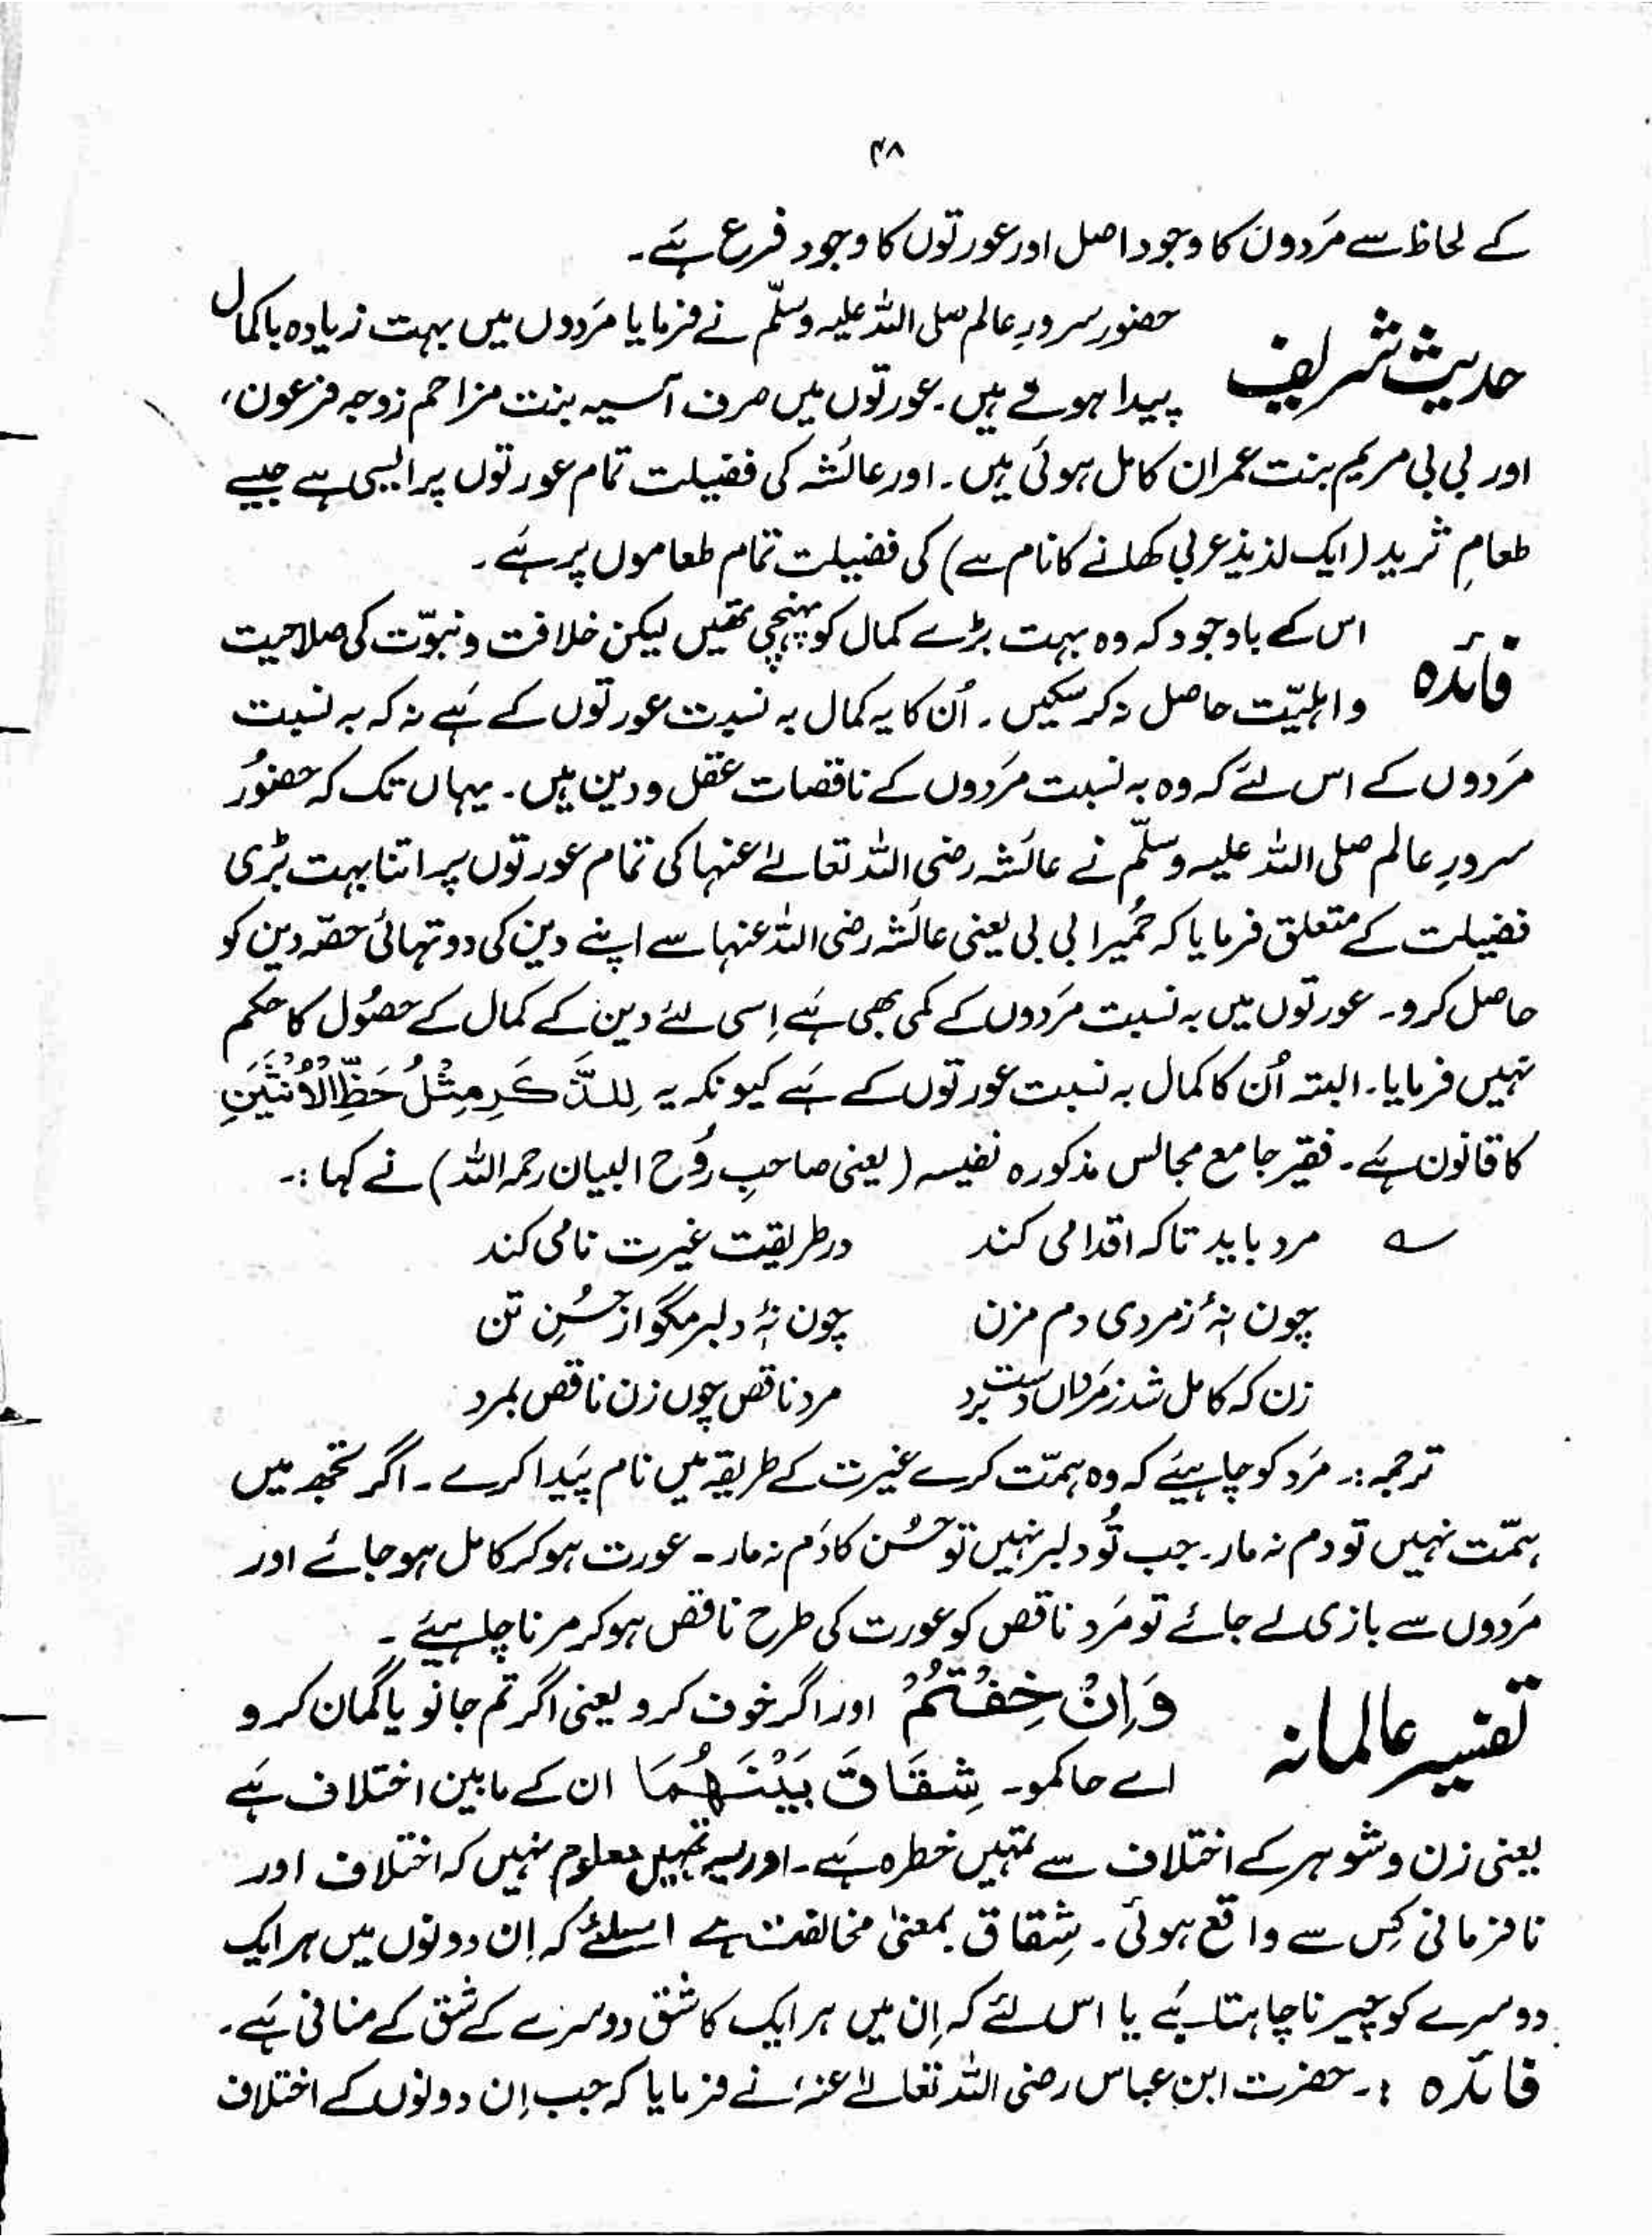 ۴۸
کے لحاظ سے مَردوں کا وجود اصل اور عورتوں کا وجود فرع ہے۔
حدیث شریف حضور سرورِ عالم صلی اللہ علیہ وسلّم نے فرمایا مَردوں میں بہت زیادہ باکمال
پیدا ہوئے ہیں۔ عورتوں میں صرف آسیہ بنت مزاحم زوجہ فرعون،
اور بی بی مریم بنت عمران کامل ہوئی ہیں۔ اور عائشہ کی فضیلت تمام عورتوں پر ایسی ہے جیسے
طعامِ ثرید (ایک لذیذ عربی کھانے کا نام ہے) کی فضیلت تمام طعاموں پر ہے۔
فائدہ اس کے باوجود کہ وہ بہت بڑے کمال کو پہنچی تھیں لیکن خلافت و نبوّت کی صلاحیت
و اہلیّت حاصل نہ کر سکیں۔ اُن کا یہ کمال بہ نسبت عورتوں کے ہے نہ کہ بہ نسبت
مَردوں کے اس لئے کہ وہ بہ نسبت مَردوں کے ناقصات عقل و دین ہیں۔ یہاں تک کہ حضورُ
سرورِ عالم صلی اللہ علیہ وسلّم نے عائشہ رضی اللہ تعالےٰ عنہا کی تمام عورتوں پر اتنا بہت بڑی
فضیلت کے متعلق فرمایا کہ حُمیرا بی بی یعنی عائشہ رضی اللہ عنہا سے اپنے دین کی دو تہائی حصّہ دین کو
حاصل کرو۔ عورتوں میں بہ نسبت مَردوں کے کمی بھی ہے اِسی لئے دین کے کمال کے حصُول کا حکم
نہیں فرمایا۔ البتہ اُن کا کمال بہ نسبت عورتوں کے ہے کیونکہ یہ لِلذَّكَرِ مِثْلُ حَظِّ الْأُنْثَيَيْنِ
کا قانون ہے۔ فقیر جامع مجالس مذکورہ نفیسہ (یعنی صاحبِ رُوح البیان رحمہ اللہ) نے کہا :۔
؎ مرد باید تا کہ اقدامی کند در طریقیت غیرت نامی کند
چون نۂ زمردی دم مزن چون نۂ دلبر مگو از حُسنِ تن
زن کہ کامل شد زمَرداں دست برد مرد ناقص چوں زن ناقص بمرد
ترجمہ :۔ مَرد کو چاہیئے کہ وہ ہمّت کرے غیرت کے طریقہ میں نام پَیدا کرے۔ اگر تجھ میں
ہمّت نہیں تو دم نہ مار۔ جب تُو دلبر نہیں تو حُسن کا دَم نہ مار۔ عورت ہو کر کامل ہو جائے اور
مَردوں سے بازی لے جائے تو مَرد ناقص کو عورت کی طرح ناقص ہو کر مرنا چاہیئے۔
تفسیر عالمانہ وَاِنْ خِفْتُمْ اور اگر خوف کرو یعنی اگر تم جانو یا گمان کرو
اے حاکمو۔ شِقَاقَ بَيْنَهُمَا ان کے مابین اختلاف ہے
یعنی زن و شوہر کے اختلاف سے تمہیں خطرہ ہے۔ اور یہ تمہیں معلوم نہیں کہ اختلاف اور
نافرمانی کِس سے واقع ہوئی۔ شِقاق بمعنیٰ مخالفت ہے اسلئے کہ اِن دونوں میں ہر ایک
دوسرے کو چیرنا چاہتا ہے یا اس لئے کہ اِن میں ہر ایک کا شق دوسرے کے شق کے منافی ہے۔
فائدہ :۔ حضرت ابنِ عباس رضی اللہ تعالےٰ عنہٗ نے فرمایا کہ جب اِن دونوں کے اختلاف